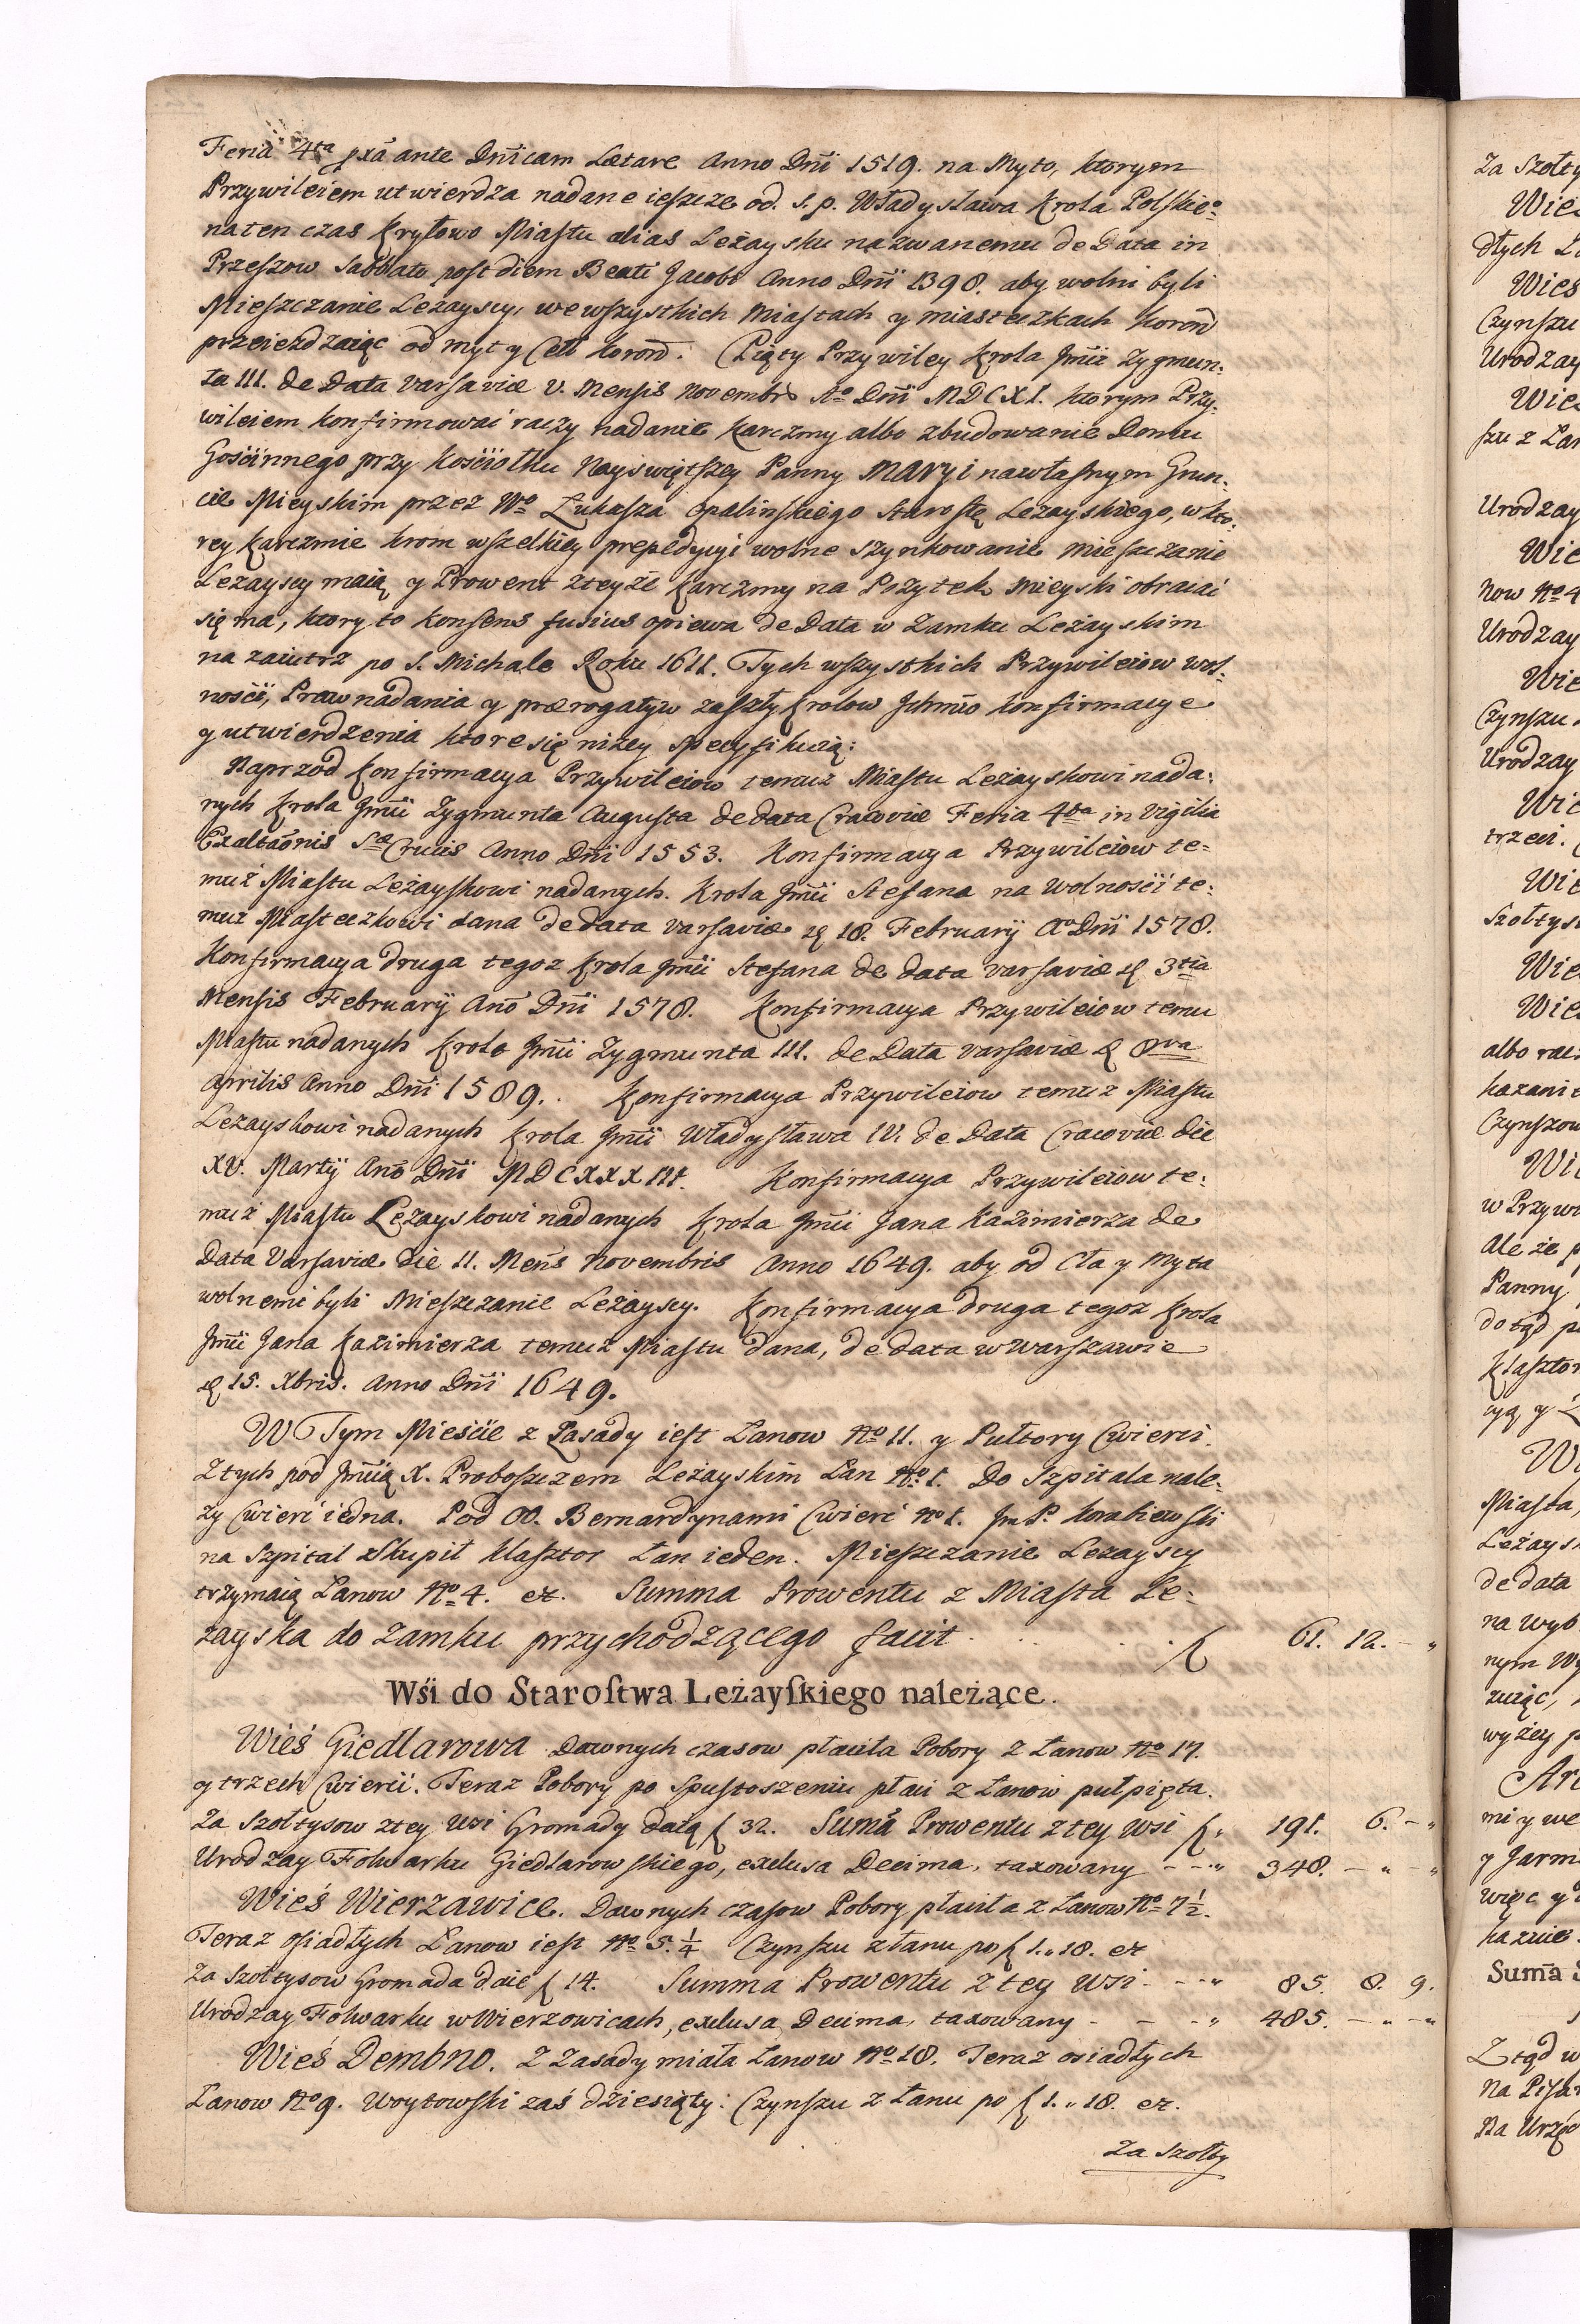 Feria 4ta pxā ante Dnicam Lætare Anno Dni 1519. na Myto, ktorym
Przywileiem utwierdza nadane ieszcze od s. p. Władysława Krola Polskieo
naten czas Kryłowo Miastu alias Leżaysku nazwanemu de Data in
Przeszow Sabbato post diem Beati Jacobi Anno Dni 1398. aby wolni byli
Mieszczanie Leżayscy, we wszystkich Miastach y miasteczkach Koron
przeieżdzaiąc od myt y Cell Koron. Piąty Przywiley Krola Jmci Zygmun:
ta III. de Data Varsaviæ V. Mensis Novembr Ao Dni MDCXI. ktorym Przy:
wileiem konfirmować raczy nadanie karczmy albo zbudowanie Domu
Gościnnego przy kościołku Nayświętszey Panny MARYI na własnym Grun:
cie Mieyskim przez Wo Łukasza Opalinskiego Starostę Leżayskiego, w kto:
rey karczmie krom wszelkiey prepedycyi wolne szynkowanie mieszczanie
Leżayscy maią y Prowent z teyże karczmy na Pożytek mieyski obracać
się ma, ktory to konsens fusius opiewa de Data w Zamku Leżayskim
na zaiutrz po S. Michale Roku 1611. Tych wszystkich Przywileiow wol:
ności, Praw nadania y prærogatyw zaszły Krolow Jchmciow konfirmacye
y utwierdzenia ktore się niżey specyfikuią:
Naprzod Konfirmacya Przywileiow temuż Miastu Leżayskowi nada:
nych Krola Jmci Zygmunta Augusta de data Cracoviæ Feria 4ta in vigilia
Exaltaonis Sæ Crucis Anno Dni 1553. Konfirmacya Przywileiow te=
muż Miastu Leżayskowi nadanych. Krola Jmci Stefana na wolności te:
muż Miasteczkowi dana de data Varsaviæ d 18. Februarij Ao Dni 1578.
Konfirmacya druga tegoż Krola Jmci Stefana de data Varsaviæ d 3tia
Mensis Februarij Ano Dni 1578. Konfirmacya Przywileiow temu
Miastu nadanych Krola Jmci Zygmunta III. de Data Varsaviæ d 8va
Aprilis Anno Dni 1589. Konfirmacya Przywileiow temuż Miastu
Leżayskowi nadanych Krola Jmci Władysława IV. de Data Cracoviæ die
XV. Martij Ano Dni MDCXXXIII. Konfirmacya Przywileiow te:
muż Miastu Leżayskowi nadanych Krola Jmci Jana Kazimierza de
Data Varsaviæ die 11. Mens Novembris Anno 1649. aby od Cła y Myta
wolnemi byli Mieszczanie Leżayscy. Konfirmacya druga tegoż Krola
Jmci Jana Kazimierza temuż Miastu dana, de data w Warszawie
d 15. Xbris. Anno Dni 1649.
W Tym Mieście z Zasady iest Łanow No 11. y Pułtory Cwierci.
Z tych pod Jmcią X. Proboszczem Leżayskim Łan No 1. Do Szpitala nale:
ży Cwierć iedna. Pod OO. Bernardynami Cwierć No 1. Jm P. Korabiewski
na Szpital Skupił klasztor Łan ieden. Mieszczanie Leżayscy
trzymaią Łanow No 4. etc. Summa Prowentu z Miasta Le:
żayska do Zamku przychodzącego facit . . . . . f 61. 12. — "
Wśi do Starostwa Leżayskiego należące.
Wieś Giedlarowa Dawnych czasow płaciła Pobory z Łanow No 17.
y trzech Cwierci. Teraz Pobory po spustoszeniu płaci z Łanow pułpięta.
Za Szołtysow z tey wsi Gromady daią f 32. Suma Prowentu z tey wsi f " 191. 6. — "
Urodzay Folwarku Giedlarowskiego, exclusa Decima, taxowany - - - " 348. — " — "
Wieś Wierzawice. Dawnych czasow Pobory płaciła z Łanow No 7 1/2.
Teraz osiadłych Łanow iest No 5. 1/4 Czynszu z łanu po f 1. " 18. etc
Za Szołtysow Gromada daie f 14. Summa Prowentu z tey wsi - - - " 85. 8. 9.
Urodzay Folwarku w Wierzowicach, exclusa Decima, taxowany - - - " 485. — " — "
Wieś Dembno. Z Zasady miała Łanow No 18. Teraz osiadłych
Łanow No 9. Woytowski zaś dziesiąty: Czynszu z Łanu po f 1. " 18. etc.
Za Szołty